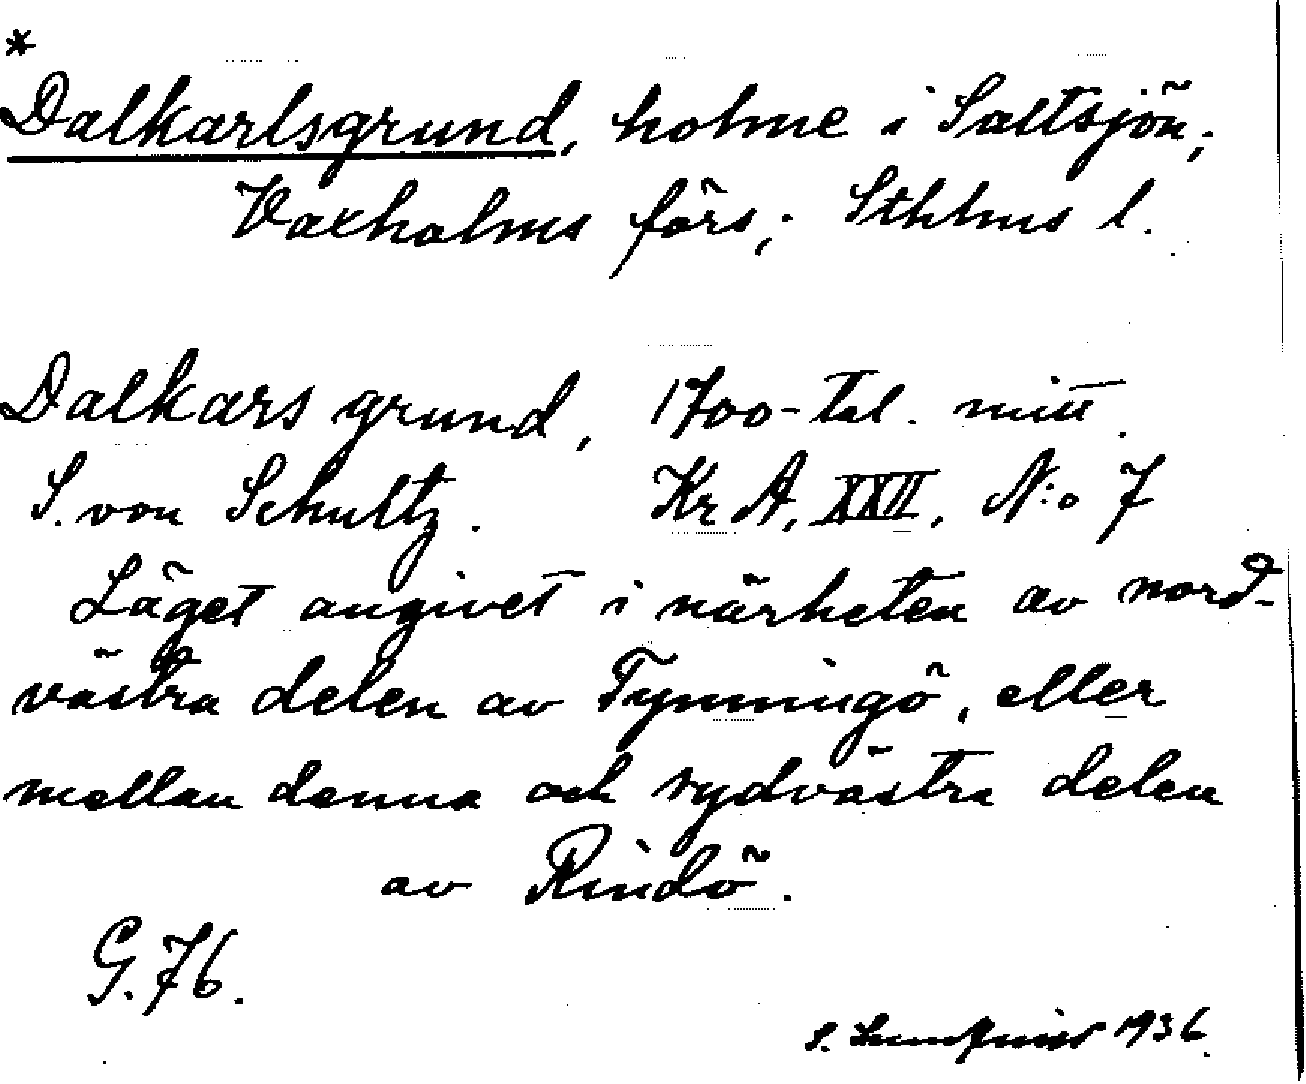 *
Dalkarlsgrund, holme i Saltsjön;
Vaxholms förs; Sthlms l.
Dalkars grund, 1700-tal. mitt.
S. von Schultz. Kr A, XXII, N:o 7
Läget angivet i närheten av nord-
västra delen av Tynningö, eller
mellan denna och sydvästra delen
av Rindö.
G. 76.
S. 1936.